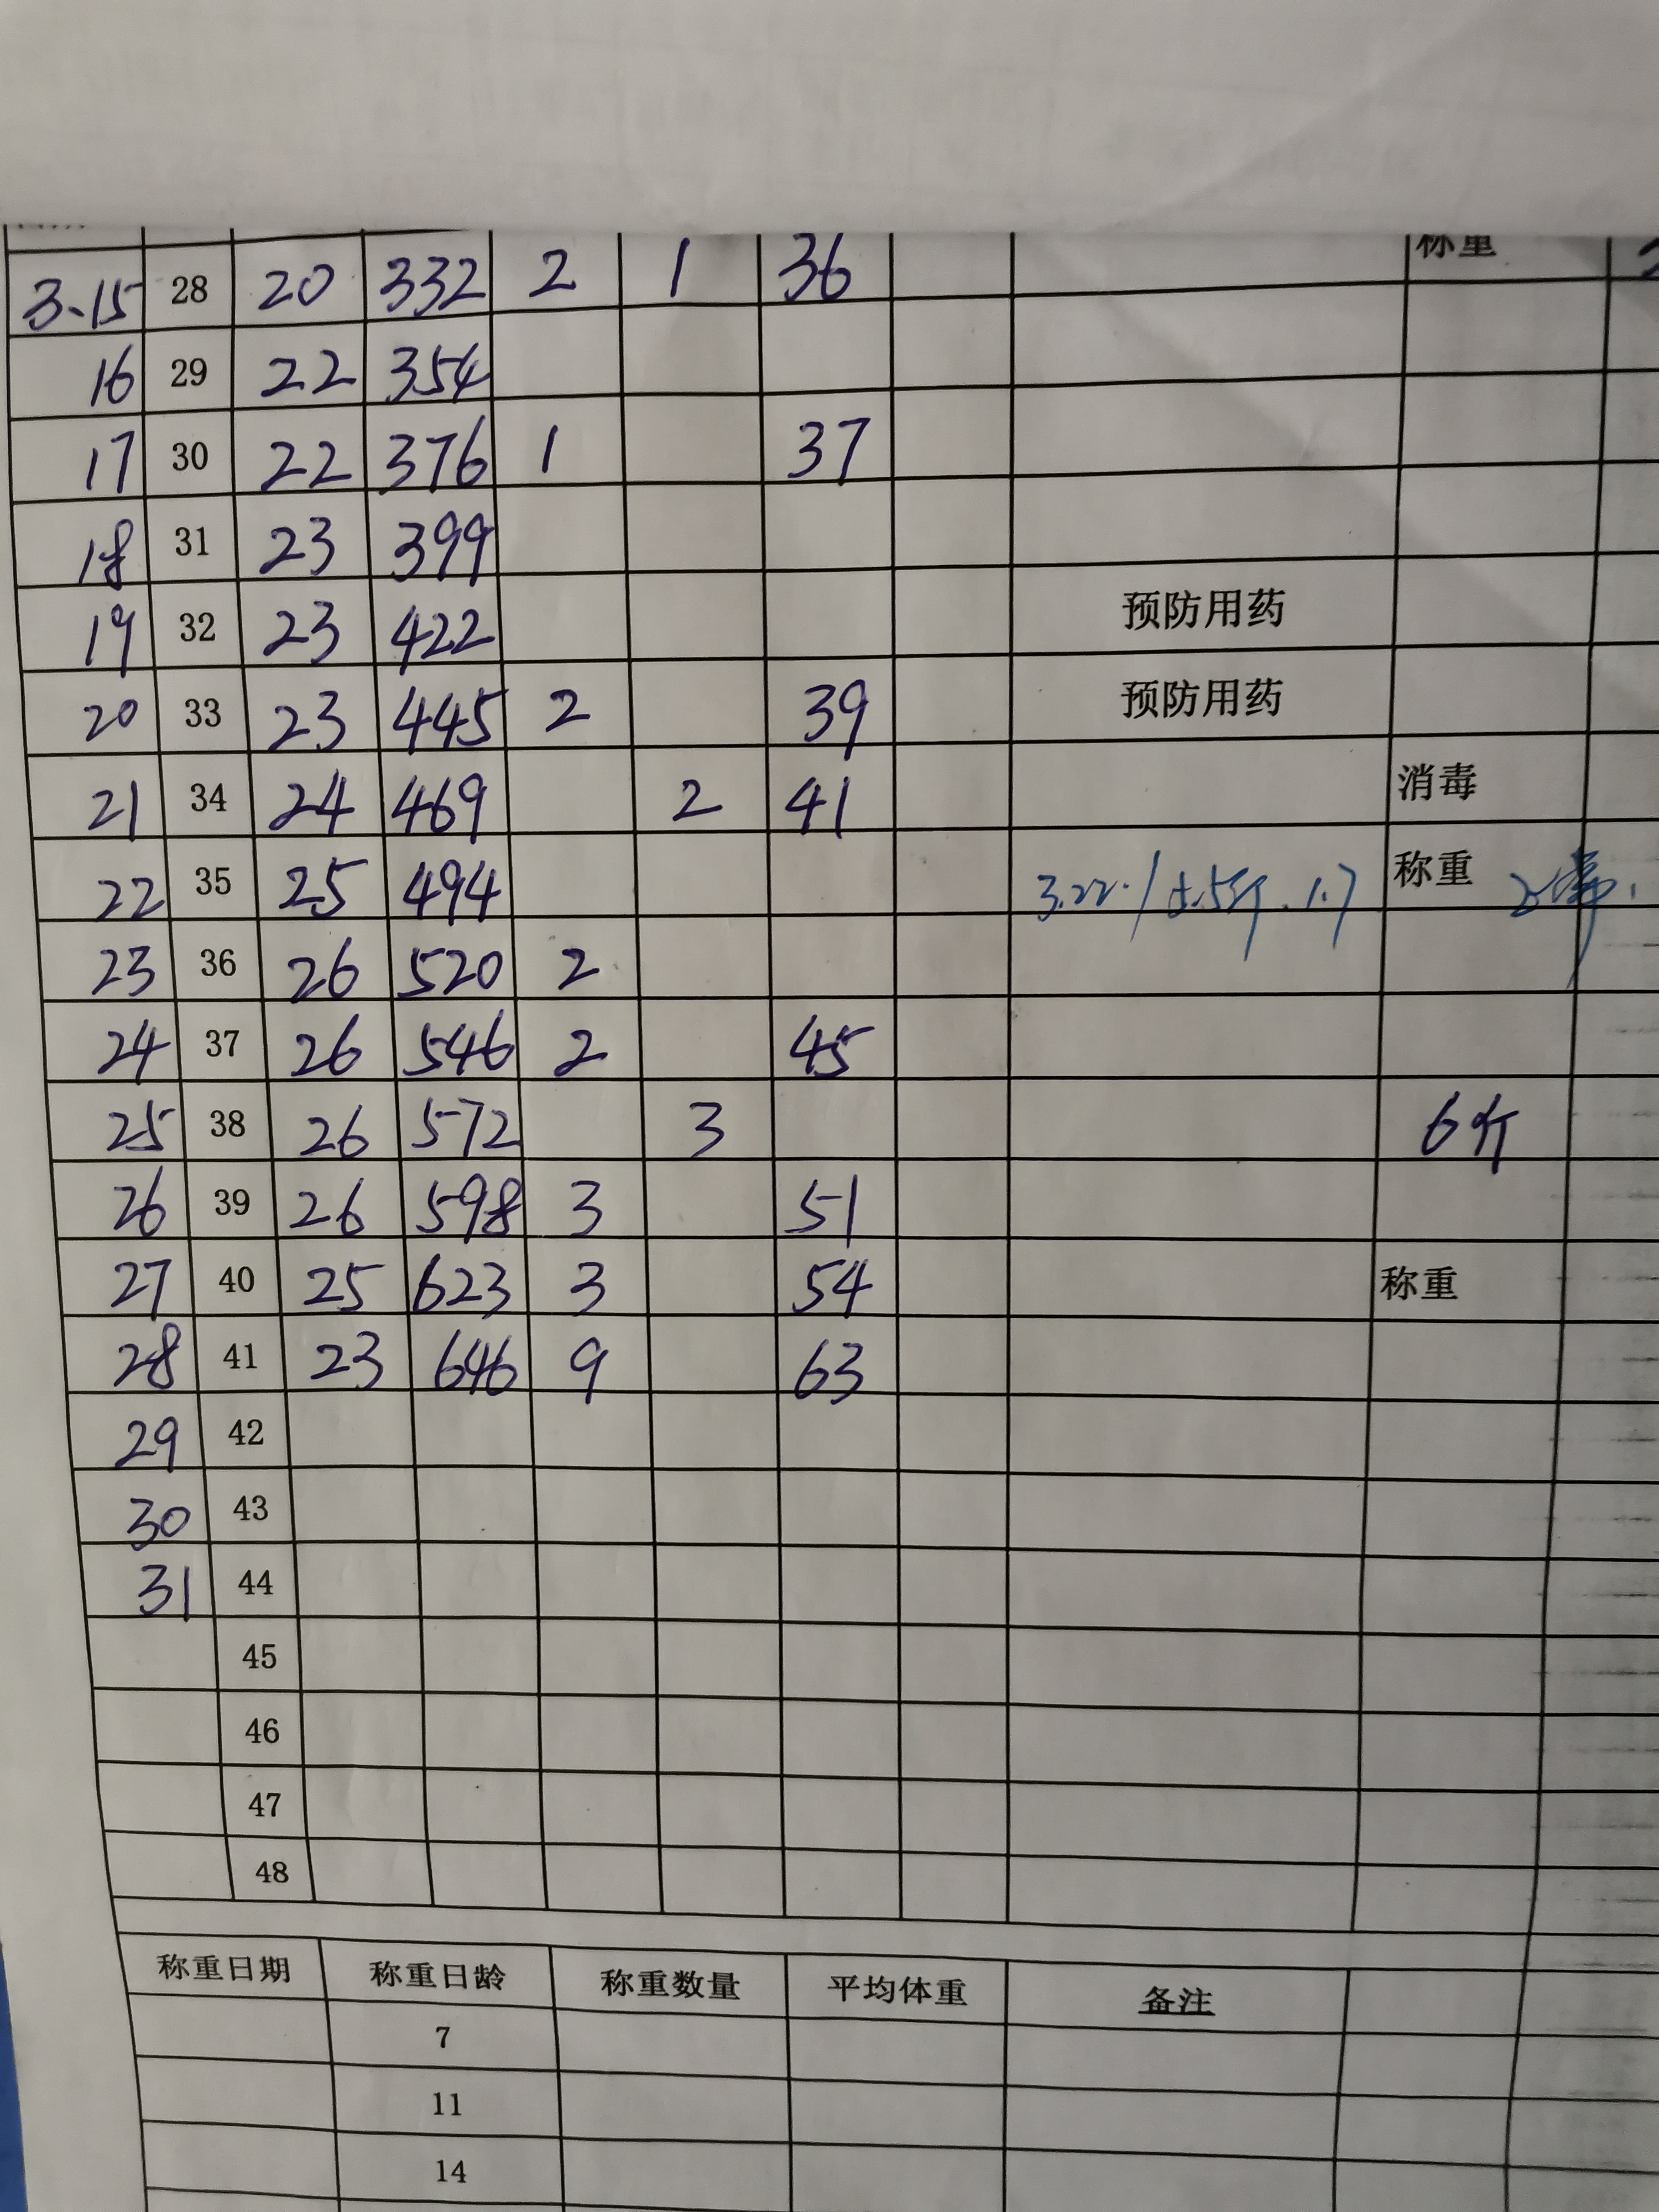 称重
3.15 28 20 332 2 1 36
16 29 22 354
17 30 22 376 1 37
18 31 23 399
19 32 23 422 预防用药
20 33 23 445 2 39 预防用药
21 34 24 469 2 41 消毒
22 35 25 494 3.22. 1.7 称重
23 36 26 520 2
24 37 26 546 2 45
25 38 26 572 3 6斤
26 39 26 598 3 51
27 40 25 623 3 54 称重
28 41 23 646 9 63
29 42
30 43
31 44
45
46
47
48
称重日期 称重日龄 称重数量 平均体重 备注
7
11
14